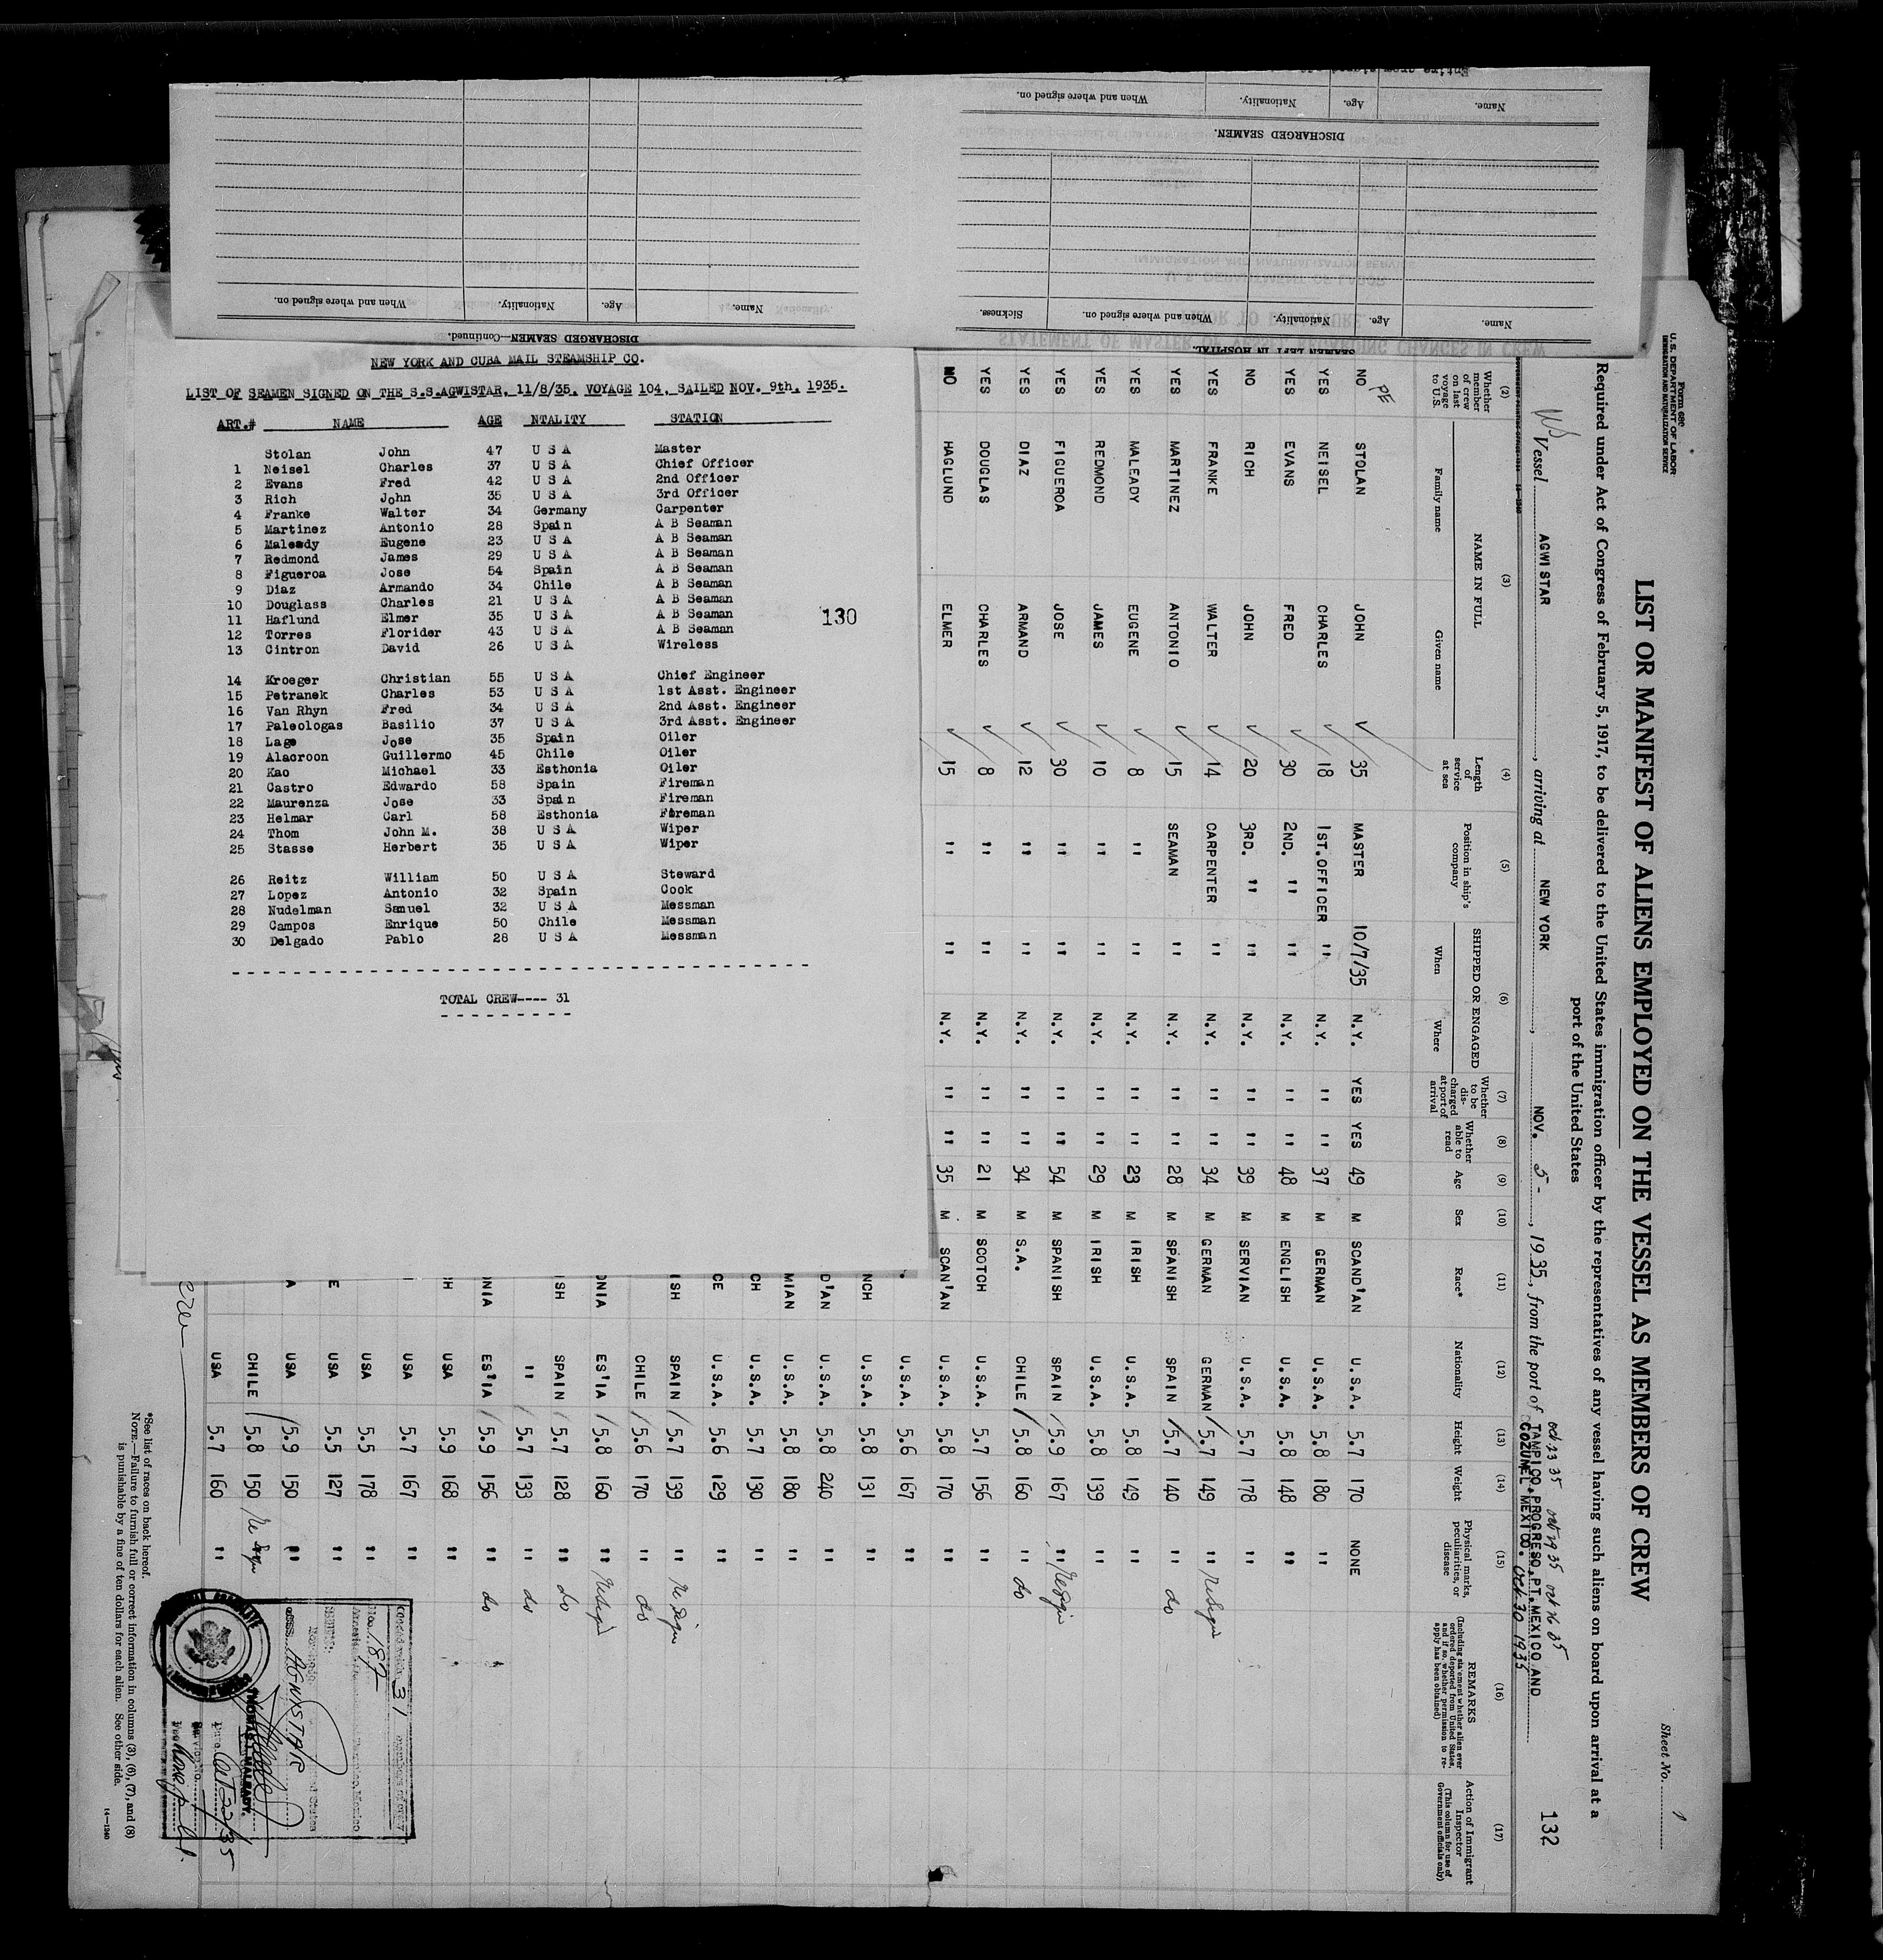 Name. Age. Nationality. When and where signed on.
DISCHARGED SEAMEN.
Name. Age. Nationality. When and where signed on. Sickness.
SEAMEN LEFT IN HOSPITAL.
Name. Age. Nationality. When and where signed on.
DISCHARGED SEAMEN—Continued.
NEW YORK AND CUBA MAIL STEAMSHIP CO.
LIST OF SEAMEN SIGNED ON THE S.S.AGWISTAR, 11/8/35, VOYAGE 104, SAILED NOV. 9th, 1935.
ART.# NAME AGE NTALITY STATION
Stolan John 47 U S A Master
1 Neisel Charles 37 U S A Chief Officer
2 Evans Fred 42 U S A 2nd Officer
3 Rich John 35 U S A 3rd Officer
4 Franke Walter 34 Germany Carpenter
5 Martinez Antonio 28 Spain A B Seaman
6 Maleady Eugene 23 U S A A B Seaman
7 Redmond James 29 U S A A B Seaman
8 Figueroa Jose 54 Spain A B Seaman
9 Diaz Armando 34 Chile A B Seaman
10 Douglass Charles 21 U S A A B Seaman
11 Haflund Elmer 35 U S A A B Seaman
12 Torres Florider 43 U S A A B Seaman
13 Cintron David 26 U S A Wireless
130
14 Kroeger Christian 55 U S A Chief Engineer
15 Petranek Charles 53 U S A 1st Asst. Engineer
16 Van Rhyn Fred 34 U S A 2nd Asst. Engineer
17 Paleologas Basilio 37 U S A 3rd Asst. Engineer
18 Lage Jose 35 Spain Oiler
19 Alacroon Guillermo 45 Chile Oiler
20 Kao Michael 33 Esthonia Oiler
21 Castro Edwardo 58 Spain Fireman
22 Maurenza Jose 33 Spain Fireman
23 Helmar Carl 58 Esthonia Fireman
24 Thom John M. 38 U S A Wiper
25 Stasse Herbert 35 U S A Wiper
26 Reitz William 50 U S A Steward
27 Lopez Antonio 32 Spain Cook
28 Nudelman Samuel 32 U S A Messman
29 Campos Enrique 50 Chile Messman
30 Delgado Pablo 28 U S A Messman
TOTAL CREW---- 31
Form 680
U.S. DEPARTMENT OF LABOR
IMMIGRATION AND NATURALIZATION SERVICE
Sheet No. 1
LIST OR MANIFEST OF ALIENS EMPLOYED ON THE VESSEL AS MEMBERS OF CREW
Required under Act of Congress of February 5, 1917, to be delivered to the United States immigration officer by the representatives of any vessel having such aliens on board upon arrival at a
port of the United States
132
oct 23 35 oct 29 35 oct 26 35
Vessel AGWISTAR, arriving at NEW YORK, NOV. 5-, 1935, from the port of TAMPICO, PROGRESO, PT. MEXICO AND
COZUMEL MEXICO. Oct 30 1935
(2) (3) (4) (5) (6) (7) (8) (9) (10) (11) (12) (13) (14) (15) (16) (17)
Whether member of crew on last voyage to U.S. NAME IN FULL Family name Given name Length of service at sea Position in ship's company SHIPPED OR ENGAGED When Where Whether to be discharged at port of arrival Whether able to read Age Sex Race* Nationality Height Weight Physical marks, peculiarities, or disease REMARKS (Including statement whether alien ever ordered deported from United States, and if so, whether permission to reapply has been obtained) Action of Immigrant Inspector (This column for use of Government officials only)
NO STOLAN JOHN 35 MASTER 10/7/35 N.Y. YES YES 49 M SCAND'AN U.S.A. 5.7 170 NONE
YES NEISEL CHARLES 18 1ST.OFFICER " N.Y. " " 37 M GERMAN U.S.A. 5.8 180 "
YES EVANS FRED 30 2ND. " " N.Y. " " 48 M ENGLISH U.S.A. 5.8 148 "
NO RICH JOHN 20 3RD. " " N.Y. " " 39 M SERVIAN U.S.A. 5.7 178 "
YES FRANKE WALTER 14 CARPENTER " N.Y. " " 34 M GERMAN GERMAN 5.7 149 "
YES MARTINEZ ANTONIO 15 SEAMAN " N.Y. " " 28 M SPANISH SPAIN 5.7 140 " do
YES MALEADY EUGENE 8 " " N.Y. " " 23 M IRISH U.S.A. 5.8 149 "
YES REDMOND JAMES 10 " " N.Y. " " 29 M IRISH U.S.A. 5.8 139 "
YES FIGUEROA JOSE 30 " " N.Y. " " 54 M SPANISH SPAIN 5.9 167 "
YES DIAZ ARMAND 12 " " N.Y. " " 34 M S.A. CHILE 5.8 160 " do
YES DOUGLAS CHARLES 8 " " N.Y. " " 21 M SCOTCH U.S.A. 5.7 156 "
NO HAGLUND ELMER 15 " " N.Y. " " 35 M SCAN'AN U.S.A. 5.8 170 "
U.S.A. 5.6 167 "
NCH U.S.A. 5.8 131 "
D'AN U.S.A. 5.8 240 "
MIAN U.S.A. 5.8 180 "
CH U.S.A. 5.7 130 "
CE U.S.A. 5.6 129 "
ISH SPAIN 5.7 139 "
CHILE 5.6 170 " do
ONIA ES'IA 5.8 160 "
ISH SPAIN 5.7 128 " do
" 5.7 133 " do
ONIA ES'IA 5.9 156 " do
H USA 5.9 168 "
USA 5.7 167 "
USA 5.5 178 "
E USA 5.5 127 "
A USA 5.9 150 "
CHILE 5.8 150
USA 5.7 160 "
crew
*See list of races on back hereof.
NOTE.—Failure to furnish full or correct information in columns (3), (6), (7), and (8)
is punishable by a fine of ten dollars for each alien. See other side.
14—1240
31 members of crew
No. 187
AGWISTAR
THOMAS J. MALEADY.
Date Oct 22/35
Service No.